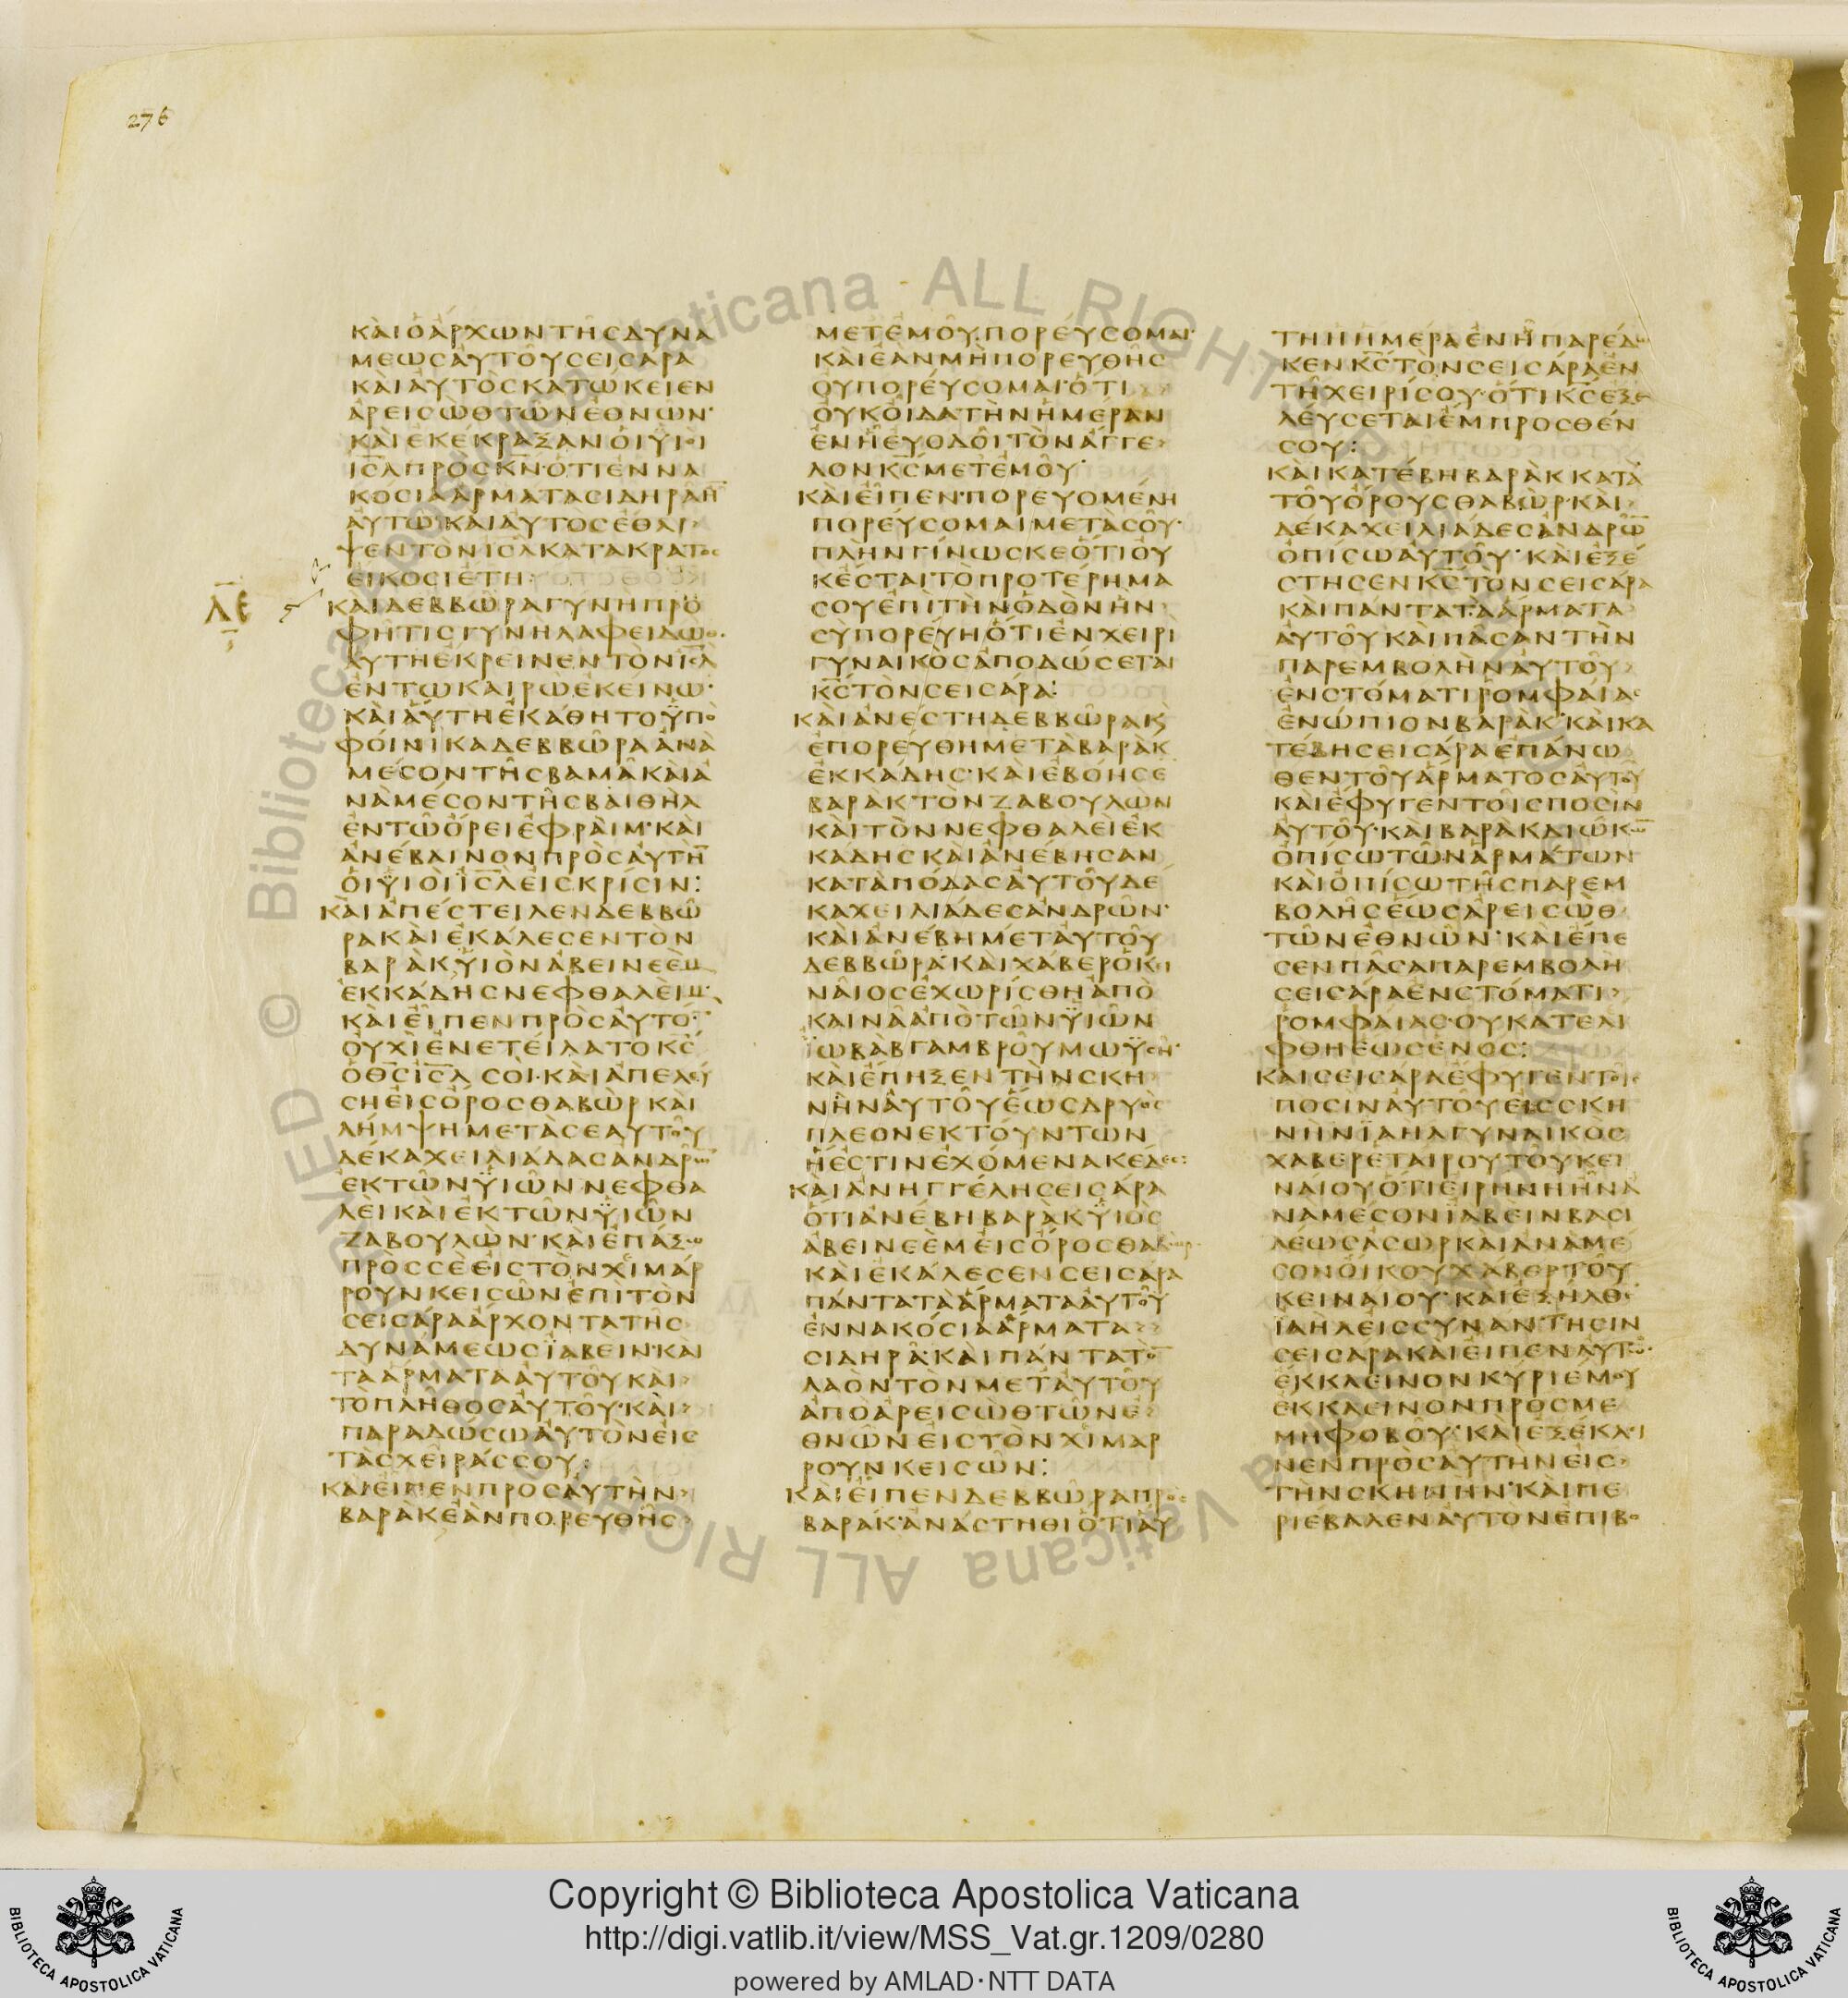 276
ΚΑΙΟΑΡΧΩΝΤΗϹΔΥΝΑ
ΜΕΩϹΑΥΤΟΥϹΕΙϹΑΡΑ
ΚΑΙΑΥΤΟϹΚΑΤΩΚΕΙΕΝ
ΑΡΕΙϹΩΘΤΩΝΕΘΝΩΝ·
ΚΑΙΕΚΕΚΡΑΞΑΝΟΙΥΙΟΙ
ΙϹΛΠΡΟϹΚΝ·ΟΤΙΕΝΝΑ
ΚΟϹΙΑΑΡΜΑΤΑϹΙΔΗΡΑΗ̅
ΑΥΤΩ·ΚΑΙΑΥΤΟϹΕΘΛΙ
ΨΕΝΤΟΝΙϹΛΚΑΤΑΚΡΑΤΟϹ
ΕΙΚΟϹΙΕΤΗ:
ΚΑΙΔΕΒΒΩΡΑΓΥΝΗΠΡΟ
ΦΗΤΙϹΓΥΝΗΛΑΦΕΙΔΩΘ·
ΑΥΤΗΕΚΡΕΙΝΕΝΤΟΝΙϹΛ
ΕΝΤΩΚΑΙΡΩΕΚΕΙΝΩ·
ΚΑΙΑΥΤΗΕΚΑΘΗΤΟΥΠΟ
ΦΟΙΝΙΚΑΔΕΒΒΩΡΑΑΝΑ
ΜΕϹΟΝΤΗϹΒΑΜΑΚΑΙΑ
ΝΑΜΕϹΟΝΤΗϹΒΑΙΘΗΛ
ΕΝΤΩΟΡΕΙΕΦΡΑΙΜ·ΚΑΙ
ΑΝΕΒΑΙΝΟΝΠΡΟϹΑΥΤΗ̅
ΟΙΥΙΟΙΙϹΛΕΙϹΚΡΙϹΙΝ:
ΚΑΙΑΠΕϹΤΕΙΛΕΝΔΕΒΒΩ
ΡΑΚΑΙΕΚΑΛΕϹΕΝΤΟΝ
ΒΑΡΑΚΥΙΟΝΑΒΕΙΝΕΕΜ
ΕΚΚΑΔΗϹΝΕΦΘΑΛΕΙΜ·
ΚΑΙΕΙΠΕΝΠΡΟϹΑΥΤΟ̅·
ΟΥΧΙΕΝΕΤΕΙΛΑΤΟΚϹ
ΟΘϹΙϹΛϹΟΙ·ΚΑΙΑΠΕΛΕΥ
ϹΗΕΙϹΟΡΟϹΘΑΒΩΡΚΑΙ
ΛΗΜΨΗΜΕΤΑϹΕΑΥΤΟΥ
ΔΕΚΑΧΕΙΛΙΑΔΑϹΑΝΔΡΩ̅
ΕΚΤΩΝΥΙΩΝΝΕΦΘΑ
ΛΕΙΚΑΙΕΚΤΩΝΥΙΩΝ
ΖΑΒΟΥΛΩΝ·ΚΑΙΕΠΑΞΩ
ΠΡΟϹϹΕΕΙϹΤΟΝΧΙΜΑΡ
ΡΟΥΝΚΕΙϹΩΝΕΠΙΤΟΝ
ϹΕΙϹΑΡΑΑΡΧΟΝΤΑΤΗϹ
ΔΥΝΑΜΕΩϹΪΑΒΕΙΝ·ΚΑΙ
ΤΑΑΡΜΑΤΑΑΥΤΟΥΚΑΙ
ΤΟΠΛΗΘΟϹΑΥΤΟΥ·ΚΑΙ
ΠΑΡΑΔΩϹΩΑΥΤΟΝΕΙϹ
ΤΑϹΧΕΙΡΑϹϹΟΥ:
ΚΑΙΕΙΠΕΝΠΡΟϹΑΥΤΗΝ
ΒΑΡΑΚΕΑΝΠΟΡΕΥΘΗϹ
ΜΕΤΕΜΟΥΠΟΡΕΥϹΟΜΑΙ·
ΚΑΙΕΑΝΜΗΠΟΡΕΥΘΗϹ
ΟΥΠΟΡΕΥϹΟΜΑΙ·ΟΤΙ
ΟΥΚΟΙΔΑΤΗΝΗΜΕΡΑΝ
ΕΝΗΕΥΟΔΟΙΤΟΝΑΓΓΕ
ΛΟΝΚϹΜΕΤΕΜΟΥ·
ΚΑΙΕΙΠΕΝ·ΠΟΡΕΥΟΜΕΝΗ
ΠΟΡΕΥϹΟΜΑΙΜΕΤΑϹΟΥ·
ΠΛΗΝΓΙΝΩϹΚΕΟΤΙΟΥ
ΚΕϹΤΑΙΤΟΠΡΟΤΕΡΗΜΑ
ϹΟΥΕΠΙΤΗΝΟΔΟΝΗΝ
ϹΥΠΟΡΕΥΗΟΤΙΕΝΧΕΙΡΙ
ΓΥΝΑΙΚΟϹΑΠΟΔΩϹΕΤΑΙ
ΚϹΤΟΝϹΕΙϹΑΡΑ:
ΚΑΙΑΝΕϹΤΗΔΕΒΒΩΡΑΚϗ
ΕΠΟΡΕΥΘΗΜΕΤΑΒΑΡΑΚ
ΕΚΚΑΔΗϹ·ΚΑΙΕΒΟΗϹΕ
ΒΑΡΑΚΤΟΝΖΑΒΟΥΛΩΝ
ΚΑΙΤΟΝΝΕΦΘΑΛΕΙΕΚ
ΚΑΔΗϹΚΑΙΑΝΕΒΗϹΑΝ
ΚΑΤΑΠΟΔΑϹΑΥΤΟΥΔΕ
ΚΑΧΕΙΛΙΑΔΕϹΑΝΔΡΩΝ·
ΚΑΙΑΝΕΒΗΜΕΤΑΥΤΟΥ
ΔΕΒΒΩΡΑ·ΚΑΙΧΑΒΕΡΟΚΕΙ
ΝΑΙΟϹΕΧΩΡΙϹΘΗΑΠΟ
ΚΑΙΝΑΑΠΟΤΩΝΥΙΩΝ
ΪΩΒΑΒΓΑΜΒΡΟΥΜΩΥϹΗ·
ΚΑΙΕΠΗΞΕΝΤΗΝϹΚΗ
ΝΗΝΑΥΤΟΥΕΩϹΔΡΥΟϹ
ΠΛΕΟΝΕΚΤΟΥΝΤΩΝ
ΗΕϹΤΙΝΕΧΟΜΕΝΑΚΕΔΕϹ:
ΚΑΙΑΝΗΓΓΕΛΗϹΕΙϹΑΡΑ
ΟΤΙΑΝΕΒΗΒΑΡΑΚΥΙΟϹ
ΑΒΕΙΝΕΕΜΕΙϹΟΡΟϹΘΑΒΩΡ·
ΚΑΙΕΚΑΛΕϹΕΝϹΕΙϹΑΡΑ
ΠΑΝΤΑΤΑΑΡΜΑΤΑΑΥΤΟΥ
ΕΝΝΑΚΟϹΙΑΑΡΜΑΤΑ
ϹΙΔΗΡΑ·ΚΑΙΠΑΝΤΑΤΟ̅
ΛΑΟΝΤΟΝΜΕΤΑΥΤΟΥ
ΑΠΟΑΡΕΙϹΩΘΤΩΝΕ
ΘΝΩΝΕΙϹΤΟΝΧΙΜΑΡ
ΡΟΥΝΚΕΙϹΩΝ:
ΚΑΙΕΙΠΕΝΔΕΒΒΩΡΑΠΡΟϹ
ΒΑΡΑΚ·ΑΝΑϹΤΗΘΙΟΤΙΑΥ
ΤΗΗΗΜΕΡΑΕΝΗΠΑΡΕΔΩ
ΚΕΝΚϹΤΟΝϹΕΙϹΑΡΑΕΝ
ΤΗΧΕΙΡΙϹΟΥ·ΟΤΙΚϹΕΞΕ
ΛΕΥϹΕΤΑΙΕΜΠΡΟϹΘΕΝ
ϹΟΥ:
ΚΑΙΚΑΤΕΒΗΒΑΡΑΚΚΑΤΑ
ΤΟΥΟΡΟΥϹΘΑΒΩΡ·ΚΑΙ
ΔΕΚΑΧΕΙΛΙΑΔΕϹΑΝΔΡΩ̅
ΟΠΙϹΩΑΥΤΟΥ·ΚΑΙΕΞΕ
ϹΤΗϹΕΝΚϹΤΟΝϹΕΙϹΑΡΑ
ΚΑΙΠΑΝΤΑΤΑΑΡΜΑΤΑ
ΑΥΤΟΥΚΑΙΠΑϹΑΝΤΗΝ
ΠΑΡΕΜΒΟΛΗΝΑΥΤΟΥ
ΕΝϹΤΟΜΑΤΙΡΟΜΦΑΙΑϹ
ΕΝΩΠΙΟΝΒΑΡΑΚ·ΚΑΙΚΑ
ΤΕΒΗϹΕΙϹΑΡΑΕΠΑΝΩ
ΘΕΝΤΟΥΑΡΜΑΤΟϹΑΥΤΟΥ
ΚΑΙΕΦΥΓΕΝΤΟΙϹΠΟϹΙΝ
ΑΥΤΟΥ·ΚΑΙΒΑΡΑΚΔΙΩΚΩ̅
ΟΠΙϹΩΤΩΝΑΡΜΑΤΩΝ
ΚΑΙΟΠΙϹΩΤΗϹΠΑΡΕΜ
ΒΟΛΗϹΕΩϹΑΡΕΙϹΩΘ
ΤΩΝΕΘΝΩΝ·ΚΑΙΕΠΕ
ϹΕΝΠΑϹΑΠΑΡΕΜΒΟΛΗ
ϹΕΙϹΑΡΑΕΝϹΤΟΜΑΤΙ
ΡΟΜΦΑΙΑϹ·ΟΥΚΑΤΕΛΙ
ΦΘΗΕΩϹΕΝΟϹ:
ΚΑΙϹΕΙϹΑΡΑΕΦΥΓΕΝΤΟΙϹ
ΠΟϹΙΝΑΥΤΟΥΕΙϹϹΚΗ
ΝΗΝΪΑΗΛΓΥΝΑΙΚΟϹ
ΧΑΒΕΡΕΤΑΙΡΟΥΤΟΥΚΕΙ
ΝΑΙΟΥΟΤΙΕΙΡΗΝΗΗΝΑ
ΝΑΜΕϹΟΝΪΑΒΕΙΝΒΑϹΙ
ΛΕΩϹΑϹΩΡΚΑΙΑΝΑΜΕ
ϹΟΝΟΙΚΟΥΧΑΒΕΡΤΟΥ
ΚΕΙΝΑΙΟΥ·ΚΑΙΕΞΗΛΘΕ
ΪΑΗΛΕΙϹϹΥΝΑΝΤΗϹΙΝ
ϹΕΙϹΑΡΑΚΑΙΕΙΠΕΝΑΥΤΩ·
ΕΚΚΛΕΙΝΟΝΚΥΡΙΕΜΟΥ
ΕΚΚΛΕΙΝΟΝΠΡΟϹΜΕ
ΜΗΦΟΒΟΥ·ΚΑΙΕΞΕΚΛΙ
ΝΕΝΠΡΟϹΑΥΤΗΝΕΙϹ
ΤΗΝϹΚΗΝΗΝ·ΚΑΙΠΕ
ΡΙΕΒΑΛΕΝΑΥΤΟΝΕΠΙΒΟ
Copyright © Biblioteca Apostolica Vaticana
http://digi.vatlib.it/view/MSS_Vat.gr.1209/0280
powered by AMLAD·NTT DATA
BIBLIOTECA APOSTOLICA VATICANA
BIBLIOTECA APOSTOLICA VATICANA